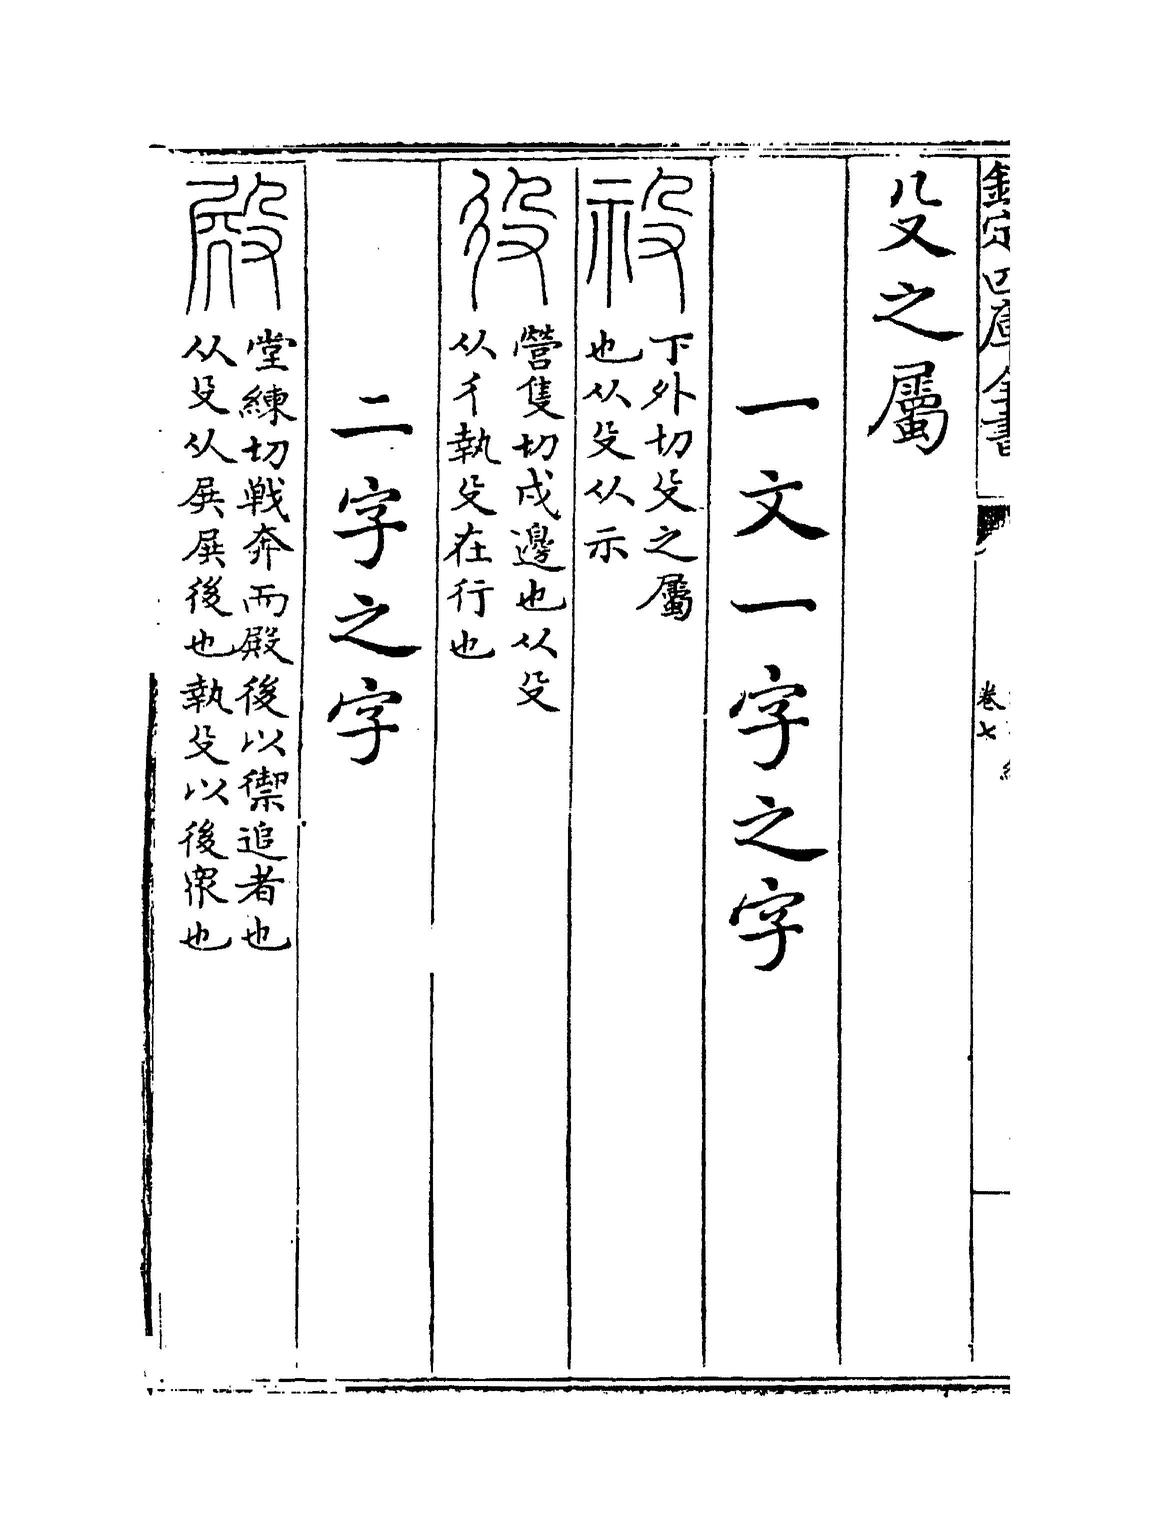 欽定四庫全書
卷七
殳之屬
一文一字之字
祋
下外切殳之屬
也从殳从示
役
營隻切戍邊也从殳
从彳執殳在行也
二字之字
殿
堂練切戦奔而殿後以禦追者也
从殳从㞟㞟後也執殳以後衆也